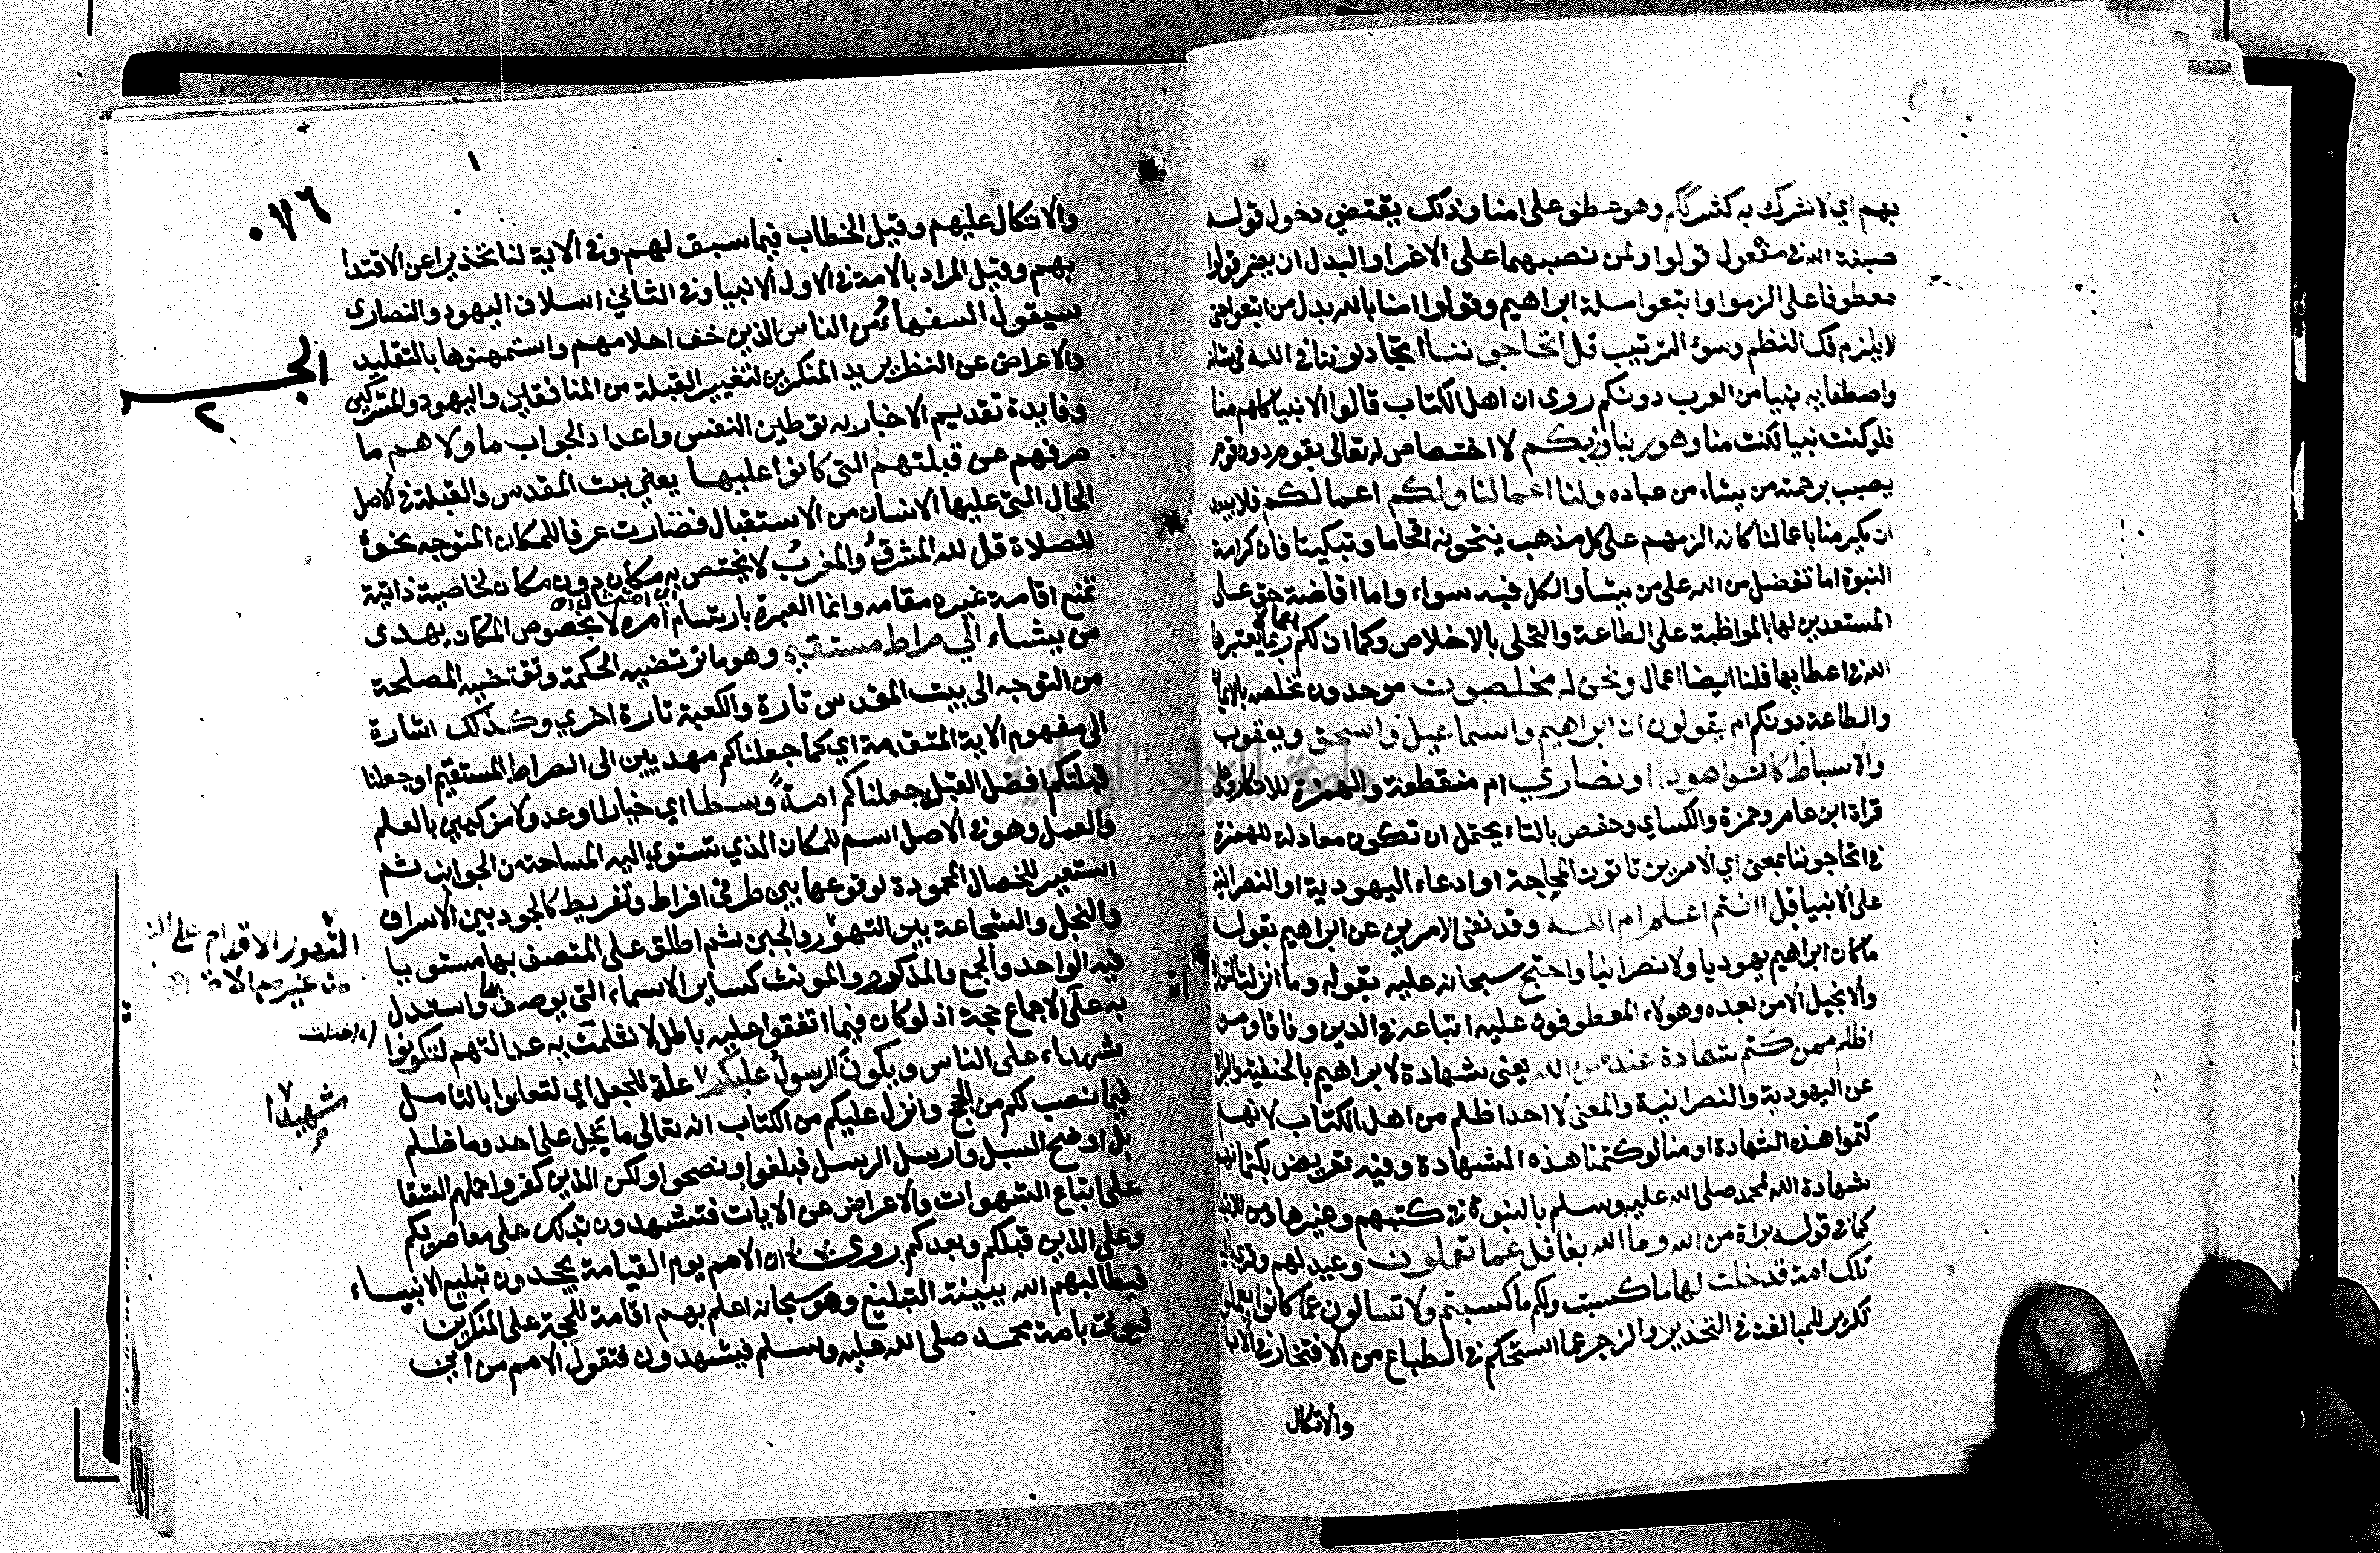 بهم اي لا نشرك به كشرككم وهو عطف على امنا وذلك يقتضي دخول قوله
صبغة الله في مفعول قولوا ولمن نصبهما على الاغرا والبدل ان يضمر قولوا
معطوفا على الزموا واتبعوا ملة ابراهيم وقولوا امنا بالله بدل من اتبعوا حتى
لا يلزم فك النظم وسوء الترتيب قل اتحاجوننا اتجادلوننا في الله في شانه
واصطفايه نبيا من العرب دونكم روى ان اهل الكتاب قالوا الانبيا كلهم منا
فلو كنت نبيا لكنت منا وهو ربنا وربكم لا اختصاص له تعالى بقوم دون قوم
يصيب برحمته من يشاء من عباده ولنا اعمالنا ولكم اعمالكم فلا يبعد
ان يكرمنا باعمالنا كانه الزمهم على كل مذهب ينتحونه افحاما وتبكيتا فان كرامة
النبوة اما تفضل من الله على من يشا والكل فيه سواء واما افاضة حق على
المستعدين لها بالمواظبة على الطاعة والتحلى بالاخلاص وكما ان لكم اعمالا ربما يعتبرها
الله في اعطايها فلنا ايضا اعمال ونحن له مخلصون موحدون نخلصه بالايمان
والطاعة دونكم ام يقولون ان ابراهيم واسماعيل واسحق ويعقوب
والاسباط كانوا هودا او نصارى ام منقطعة والهمزة للانكار وعلى
قراة ابن عامر وحمزة والكساي وحفص بالتاء يحتمل ان تكون معادلة للهمزة
في اتحاجوننا بمعنى اي الامرين تاتون المحاجة او ادعاء اليهودية او النصرانية
على الانبيا قل اانتم اعلم ام الله وقد نفى الامرين عن ابراهيم بقوله
ما كان ابراهيم يهوديا ولا نصرانيا واحتج سبحانه عليه بقوله وما انزلت التوراة
والانجيل الا من بعده وهولاء المعطوفون عليه اتباعه في الدين وفاقا ومن
اظلم ممن كتم شهادة عنده من الله يعنى شهادة لابراهيم بالحنفية والبراة
عن اليهودية والنصرانية والمعنى لا احد اظلم من اهل الكتاب لانهم
كتموا هذه الشهادة او منا لو كتمنا هذه الشهادة وفيه تعريض بكتمانهم
شهادة الله لمحمد صلى الله عليه وسلم بالنبوة في كتبهم وغيرها ومن للابتدا
كما في قوله براة من الله وما الله بغافل عما تعملون وعيد لهم
تلك امة قد خلت لها ما كسبت ولكم ما كسبتم ولا تسالون عما كانوا يعملون
تكرير للمبالغة في التحذير والزجر عما استحكم في الطباع من الافتخار في الابا
والاتكال
والاتكال عليهم وقيل الخطاب فيما سبق لهم وفي الاية لنا تحذيرا عن الاقتدا
بهم وقيل المراد بالامة في الاول الانبيا وفي الثاني اسلاف اليهود والنصارى
سيقول السفهاء من الناس الذين خف احلامهم واستمهنوها بالتقليد
والاعراض عن النظر يريد المنكرين لتغيير القبلة من المنافقين واليهود والمشركين
وفايدة تقديم الاخبار به توطين النفس واعداد الجواب ما ولاهم ما
صرفهم عن قبلتهم التى كانوا عليها يعني بيت المقدس والقبلة في الاصل
الحال التى عليها الانسان من الاستقبال فصارت عرفا للمكان المتوجه نحوه
للصلاة قل لله المشرق والمغرب لا يختص به مكان دون مكان لخاصية ذاتية
تمنع اقامة غيره مقامه وانما العبرة بارتسام امره لا بخصوص المكان يهدى
من يشاء الى صراط مستقيم وهو ما ترتضيه الحكمة وتقتضيه المصلحة
من التوجه الى بيت المقدس تارة والكعبة تارة اخرى وكذلك اشارة
الى مفهوم الاية المتقدمة اي كما جعلناكم مهديين الى الصراط المستقيم او جعلنا
قبلتكم افضل القبل جعلناكم امة وسطا اي خيارا او عدولا مزكيين بالعلم
والعمل وهو في الاصل اسم للمكان الذي تستوي اليه المساحة من الجوانب ثم
استعير للخصال المحمودة لوقوعها بين طرفي افراط وتفريط كالجود بين الاسراف
والبخل والشجاعة بين التهور والجبن ثم اطلق على المتصف بها مستويا
فيه الواحد والجمع والمذكر والمونث كساير الاسماء التى يوصف بها واستدل
به على الاجماع حجة اذ لو كان فيما اتفقوا عليه باطل لانثلمت به عدالتهم لتكونوا
شهداء على الناس ويكون الرسول عليكم علة للجعل اي لتعلموا بالتامل
فيما نصب لكم من الحجج وانزل عليكم من الكتاب انه تعالى ما بخل على احد وما ظلم
بل اوضح السبل وارسل الرسل فبلغوا ونصحوا ولكن الذين كفروا حملهم الشقا
على اتباع الشهوات والاعراض عن الايات فتشهدون بذلك على معاصريكم
وعلى الذين قبلكم وبعدكم روى ان الامم يوم القيامة يجحدون تبليغ الانبياء
فيطالبهم الله ببينة التبليغ وهو سبحانه اعلم بهم اقامة للحجة على المنكرين
فيوتى بامة محمد صلى الله عليه وسلم فيشهدون فتقول الامم من اين
الجـ
٢
التهور الاقدام على
شهيدا